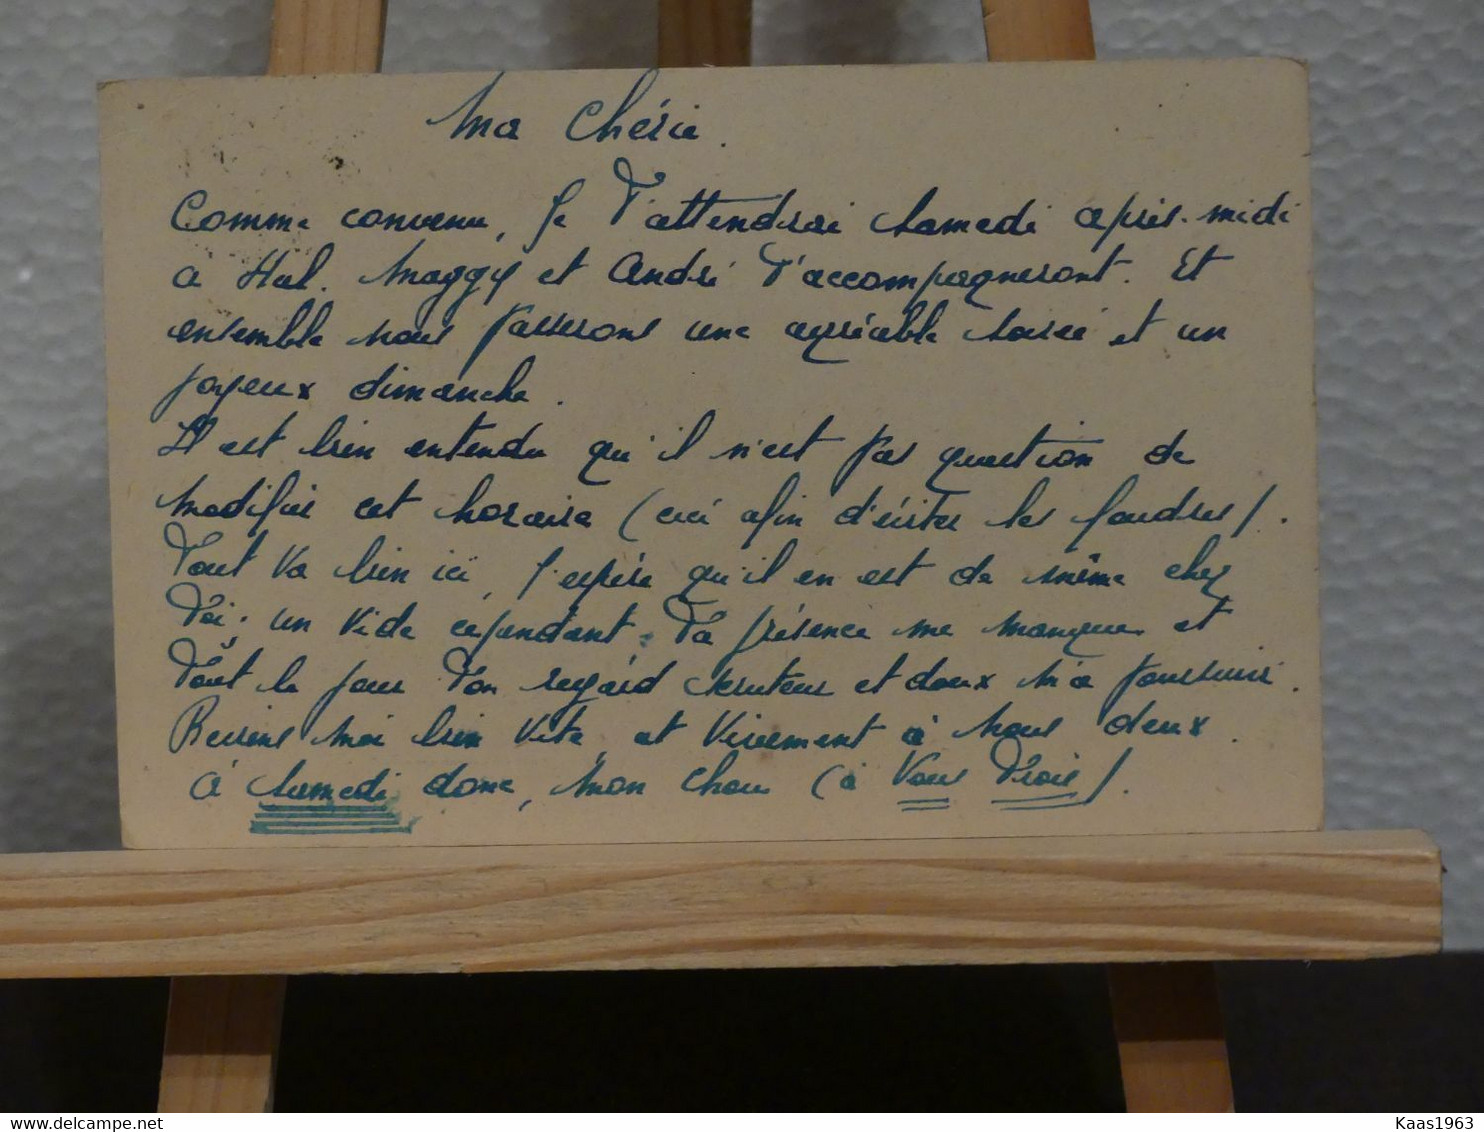 Ma Chérie.
Comme convenu, Je T'attendrai Samedi après-midi
a Hal. Maggy et André T'accompagneront. Et
ensemble nous passerons une agréable soirée et un
joyeux dimanche.
Il est bien entendu qu'il n'est pas question de
modifier cet horaire (ceci afin d'éviter les foudres).
Tout va bien ici, J'espère qu'il en est de même chez
Toi. un vide cependant. Ta présence me manque et
Tout le jour Ton regard scruteur et doux m'a poursuivi.
Reviens moi bien vite, et vivement à nous deux.
A Samedi donc, mon chou (à Vous Trois).
Kaas1963